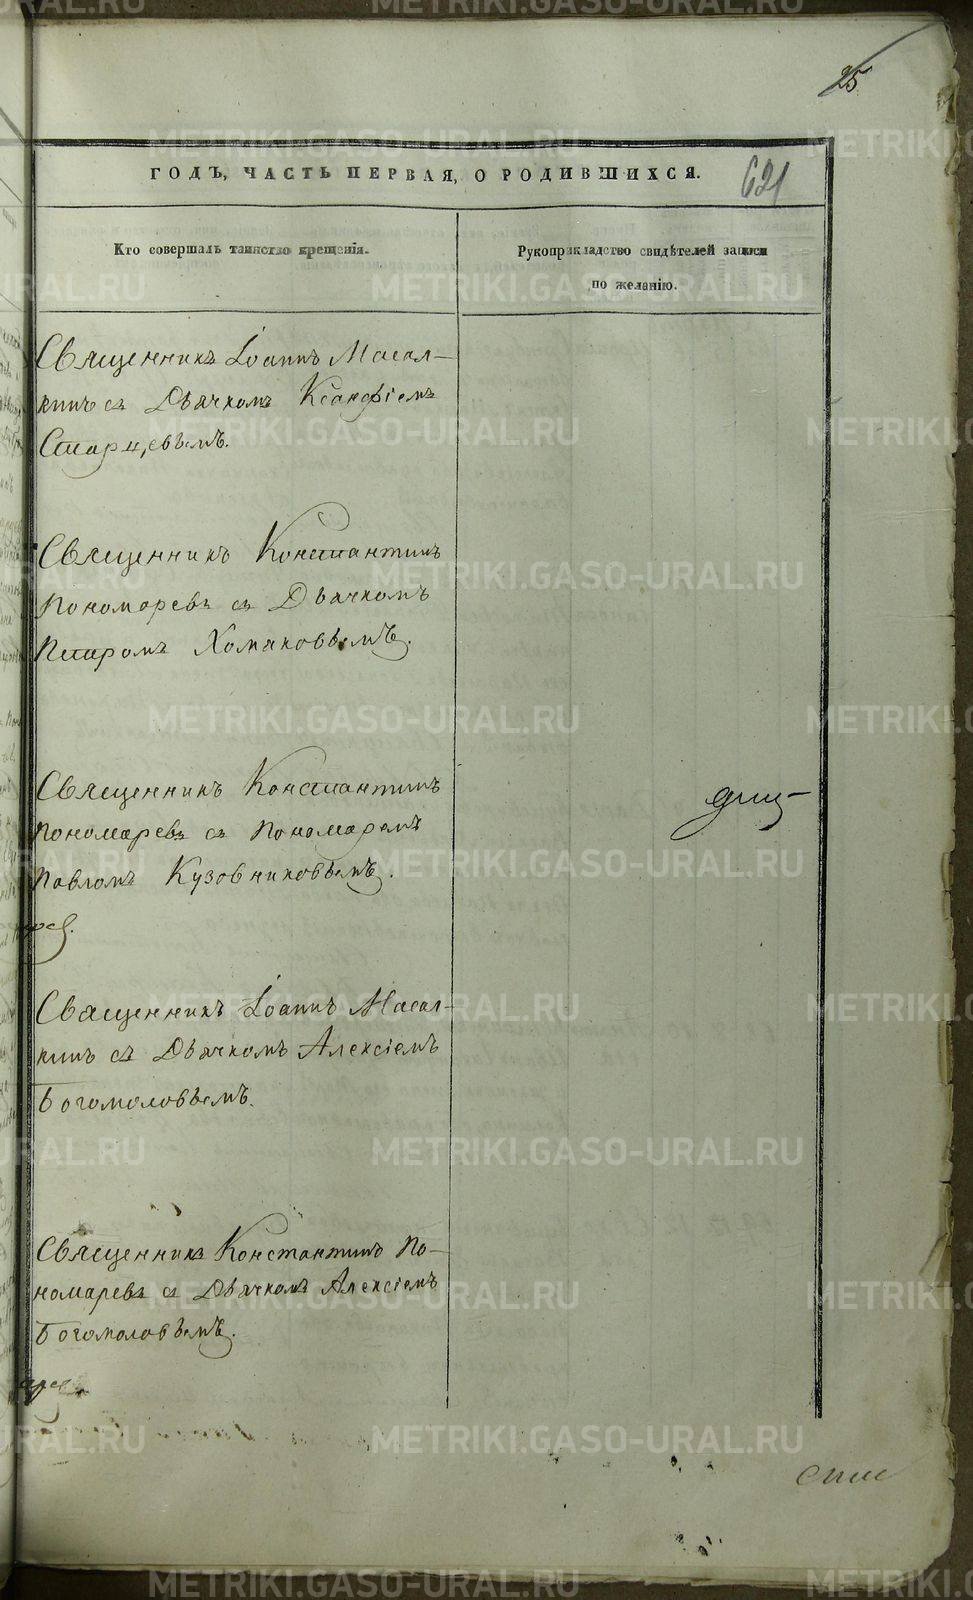 25
ГОДЪ, ЧАСТЬ ПЕРВАЯ, О РОДИВШИХСЯ.
621
Кто совершалъ таинство крещенія.
Рукоприкладство свидѣтелей записи
по желанію.
Священникъ Іоаннъ Масал-
кинъ съ Дьячкомъ Ксанфіемъ
Старцевымъ.
Священникъ Константинъ
Пономаревъ съ Дьячкомъ
Петромъ Хомяковымъ.
Священникъ Константинъ
Пономаревъ съ Пономаремъ
Павломъ Кузовниковымъ.
Священникъ Іоаннъ Масал-
кинъ съ Дьячкомъ Алексіемъ
Богомоловымъ.
Священникъ Константинъ По-
номаревъ съ Дьячкомъ Алексіемъ
Богомоловымъ.
METRIKI.GASO-URAL.RU